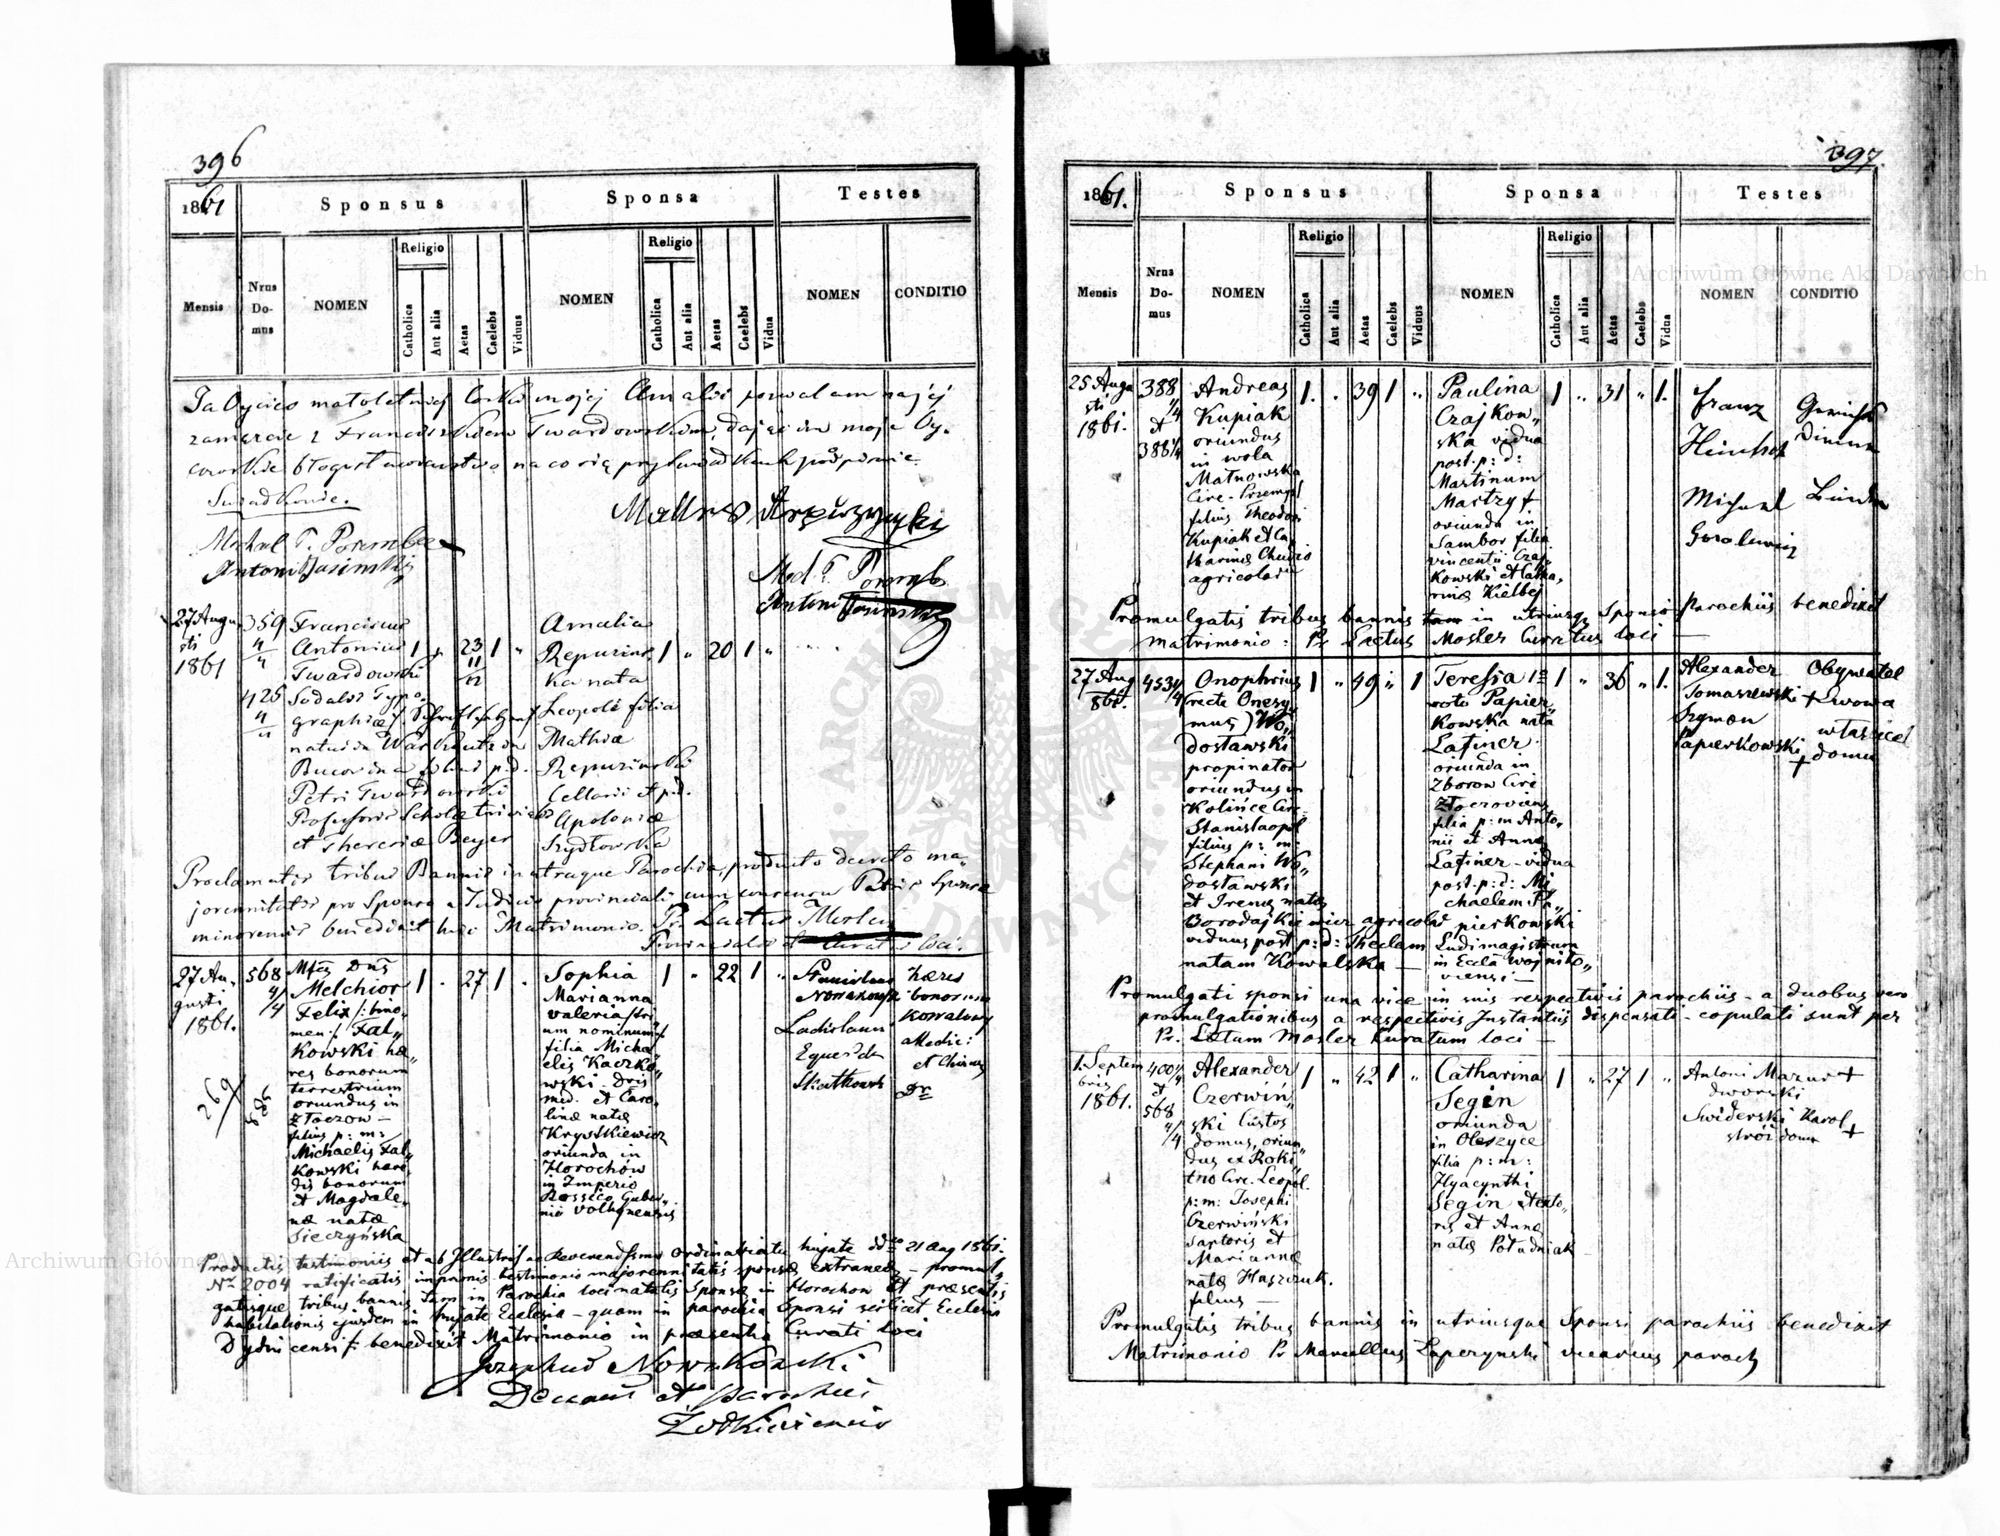 396
1861
Sponsus
Sponsa
Testes
Mensis
Nrus Do-mus
NOMEN
Religio
Catholica
Aut alia
Aetas
Caelebs
Viduus
NOMEN
Religio
Catholica
Aut alia
Aetas
Caelebs
Vidua
NOMEN
CONDITIO
małoletniej Corki mojej Amalii pozwalam na jej
zamęzcie z Franciszkiem Twardowskim, dając im moje Oy-
cowskie błogosławienstwo na co się przy świadkach podpisuię.
Swiadkowie.
Antoni Jasinski
Antoni Jasinski
27 Augu
sti
1861
359
425
Franciscus
Antonius
Twardowski
Sodalis Typo
graphiae
natus in
Bucovina filius p.d.
Petri Twardowski
Professoris Scholae trivialis
et Theresiae Beyer
1 „ 23 1 „
Amalia
Repuzins
ka nata
Leopoli filia
Mathiae
Repuzinski
Cellarii et p.d.
Apoloniae
Szydłowska
1 „ 20 1 „
Proclamatis tribus Bannis in utraque Parochia, producto decreto ma-
jorennitatis pro Sponso a Judicio provinciali cum consensu Patris Sponsae
minorennis benedixit huic Matrimonio. Pr. Laetus Mosler
Curatus loci.
27 Au-
gusti
1861.
568
4/4
Mfcs Dns
Melchior
Felix /: bino
men :/ Fal„
kowski hae„
res bonorum
terrestrium
oriundus in
Złoczow –
filius p: m:
Michaelis Fal„
kowski haere
dis bonorum
et Magdale„
nae natae
Sieczyńska
1 „ 27 1 „
Sophia
Marianna
Valeria /tri
um nominum/
filia Micha„
elis Kaczko„
wski Dris
med. et Caro„
linae natae
Krystkiewicz
oriunda in
Horochów
in Imperio
Rossico Guber„
nio Volhynensis
1 „ 22 1 „
Stanislaus
Nowakowski
Ladislaus
Eques de
Skatkowski
haeres
bonorum
Kowalowy
Medic:
et Chirurg
Dr
269
568
Productis testimoniis et ab Illustriss ac Reverendissimo Ordinariatu hujate ddto 21 Aug 1861.
Nr 2004 ratificatis, imprimis testimonio majorennitatis sponsae extraneae – promul„
gatisque tribus bannis tam in Parochia loci natalis Sponsae in Horochow et praesentis
habitationis ejusdem in hujate Ecclesia – quam in parochia Sponsi scilicet Ecclesia
benedixit Matrimonio in praesentia Curati loci
Josephus Nowakowski
Decanus et Parochus
Żołkiewiensis
397.
1861.
Sponsus
Sponsa
Testes
Mensis
Nrus Do-mus
NOMEN
Religio
Catholica
Aut alia
Aetas
Caelebs
Viduus
NOMEN
Religio
Catholica
Aut alia
Aetas
Caelebs
Vidua
NOMEN
CONDITIO
25 Augu
sti
1861.
388
4/4
et
388 4/4
Andreas
Kupiak
oriundus
in Wola
Matnowska
Circ. Przemysl
filius Theodori
Kupiak et Ca„
tharinae Chudio
agricolarum
1. „ 39 1 „
Paulina
Czajkow„
ska vidua
post. p: d:
Martinum
Martzyf
oriunda in
Sambor filia
Vincentii Czaj„
kowski et Catha„
rinae Kielbej
1 „ 31 „ 1.
Franz
Michael
Promulgatis tribus bannis tam in utriusque Sponsi Parochiis benedixit
matrimonio: Pr Laetus Mosler Curatus loci —
27 Aug
861.
453 4/4
Onophrius
(recte Onesy
mus) Wo„
dosławski
propinator
oriundus in
Kolińce Circ.
Stanislaopol
filius p: m:
Stephani Wo„
dosławski
et Irenae natae
Borodajkiewicz agricolar
viduus post p: d: Theclam
natam Kowalska —
1 „ 49 „ 1
Teressia 1o
voto Papier„
kowska nata
Lafiner
oriunda in
Zborow Circ
Złoczoviens,
filia p: m Anto„
nii et Annae
Lafiner – vidua
post. p: d: Mi„
chaelem Pa„
pierkowski
Ludimagistrum
in Eccla Wojnito„
viensi –
1 „ 36 „ 1.
Alexander
Tomaszewski +
Szymon
Papierkowski +
Obywatel
Lwowa
właściciel
domu
Promulgati sponsi una vice in suis respectivis parochiis – a duobus vero
promulgationibus a respectivis Instantiis dispensati – copulati sunt per
Pr. Laetum Mosler Curatum loci —
1. Septem
bris
1861.
400 4/4
et
568
4/4
Alexander
Czerwiń„
ski Custos
domus, oriun
dus ex Roki„
tno Circ. Leopol.
p: m: Josephi
Czerwiński
Sartoris et
Mariannae
natae Huszczuk.
filius —
1 „ 42 1 „
Catharina
Segin
oriunda
in Oleszyce
filia p: m:
Hyacynthi
Segin texto„
ris et Annae
natae Południak
1 „ 27 1 „
Antoni Mazur +
dworski
Swiderski Karol +
stróż domu
Promulgatis tribus bannis in utriusque Sponsi parochiis benedixit
Matrimonio Pr Marcellus vicarius paroch
Archiwum Główne Akt Dawnych
Archiwum Główne Akt Dawnych
ARCHIWUM GŁÓWNE AKT DAWNYCH